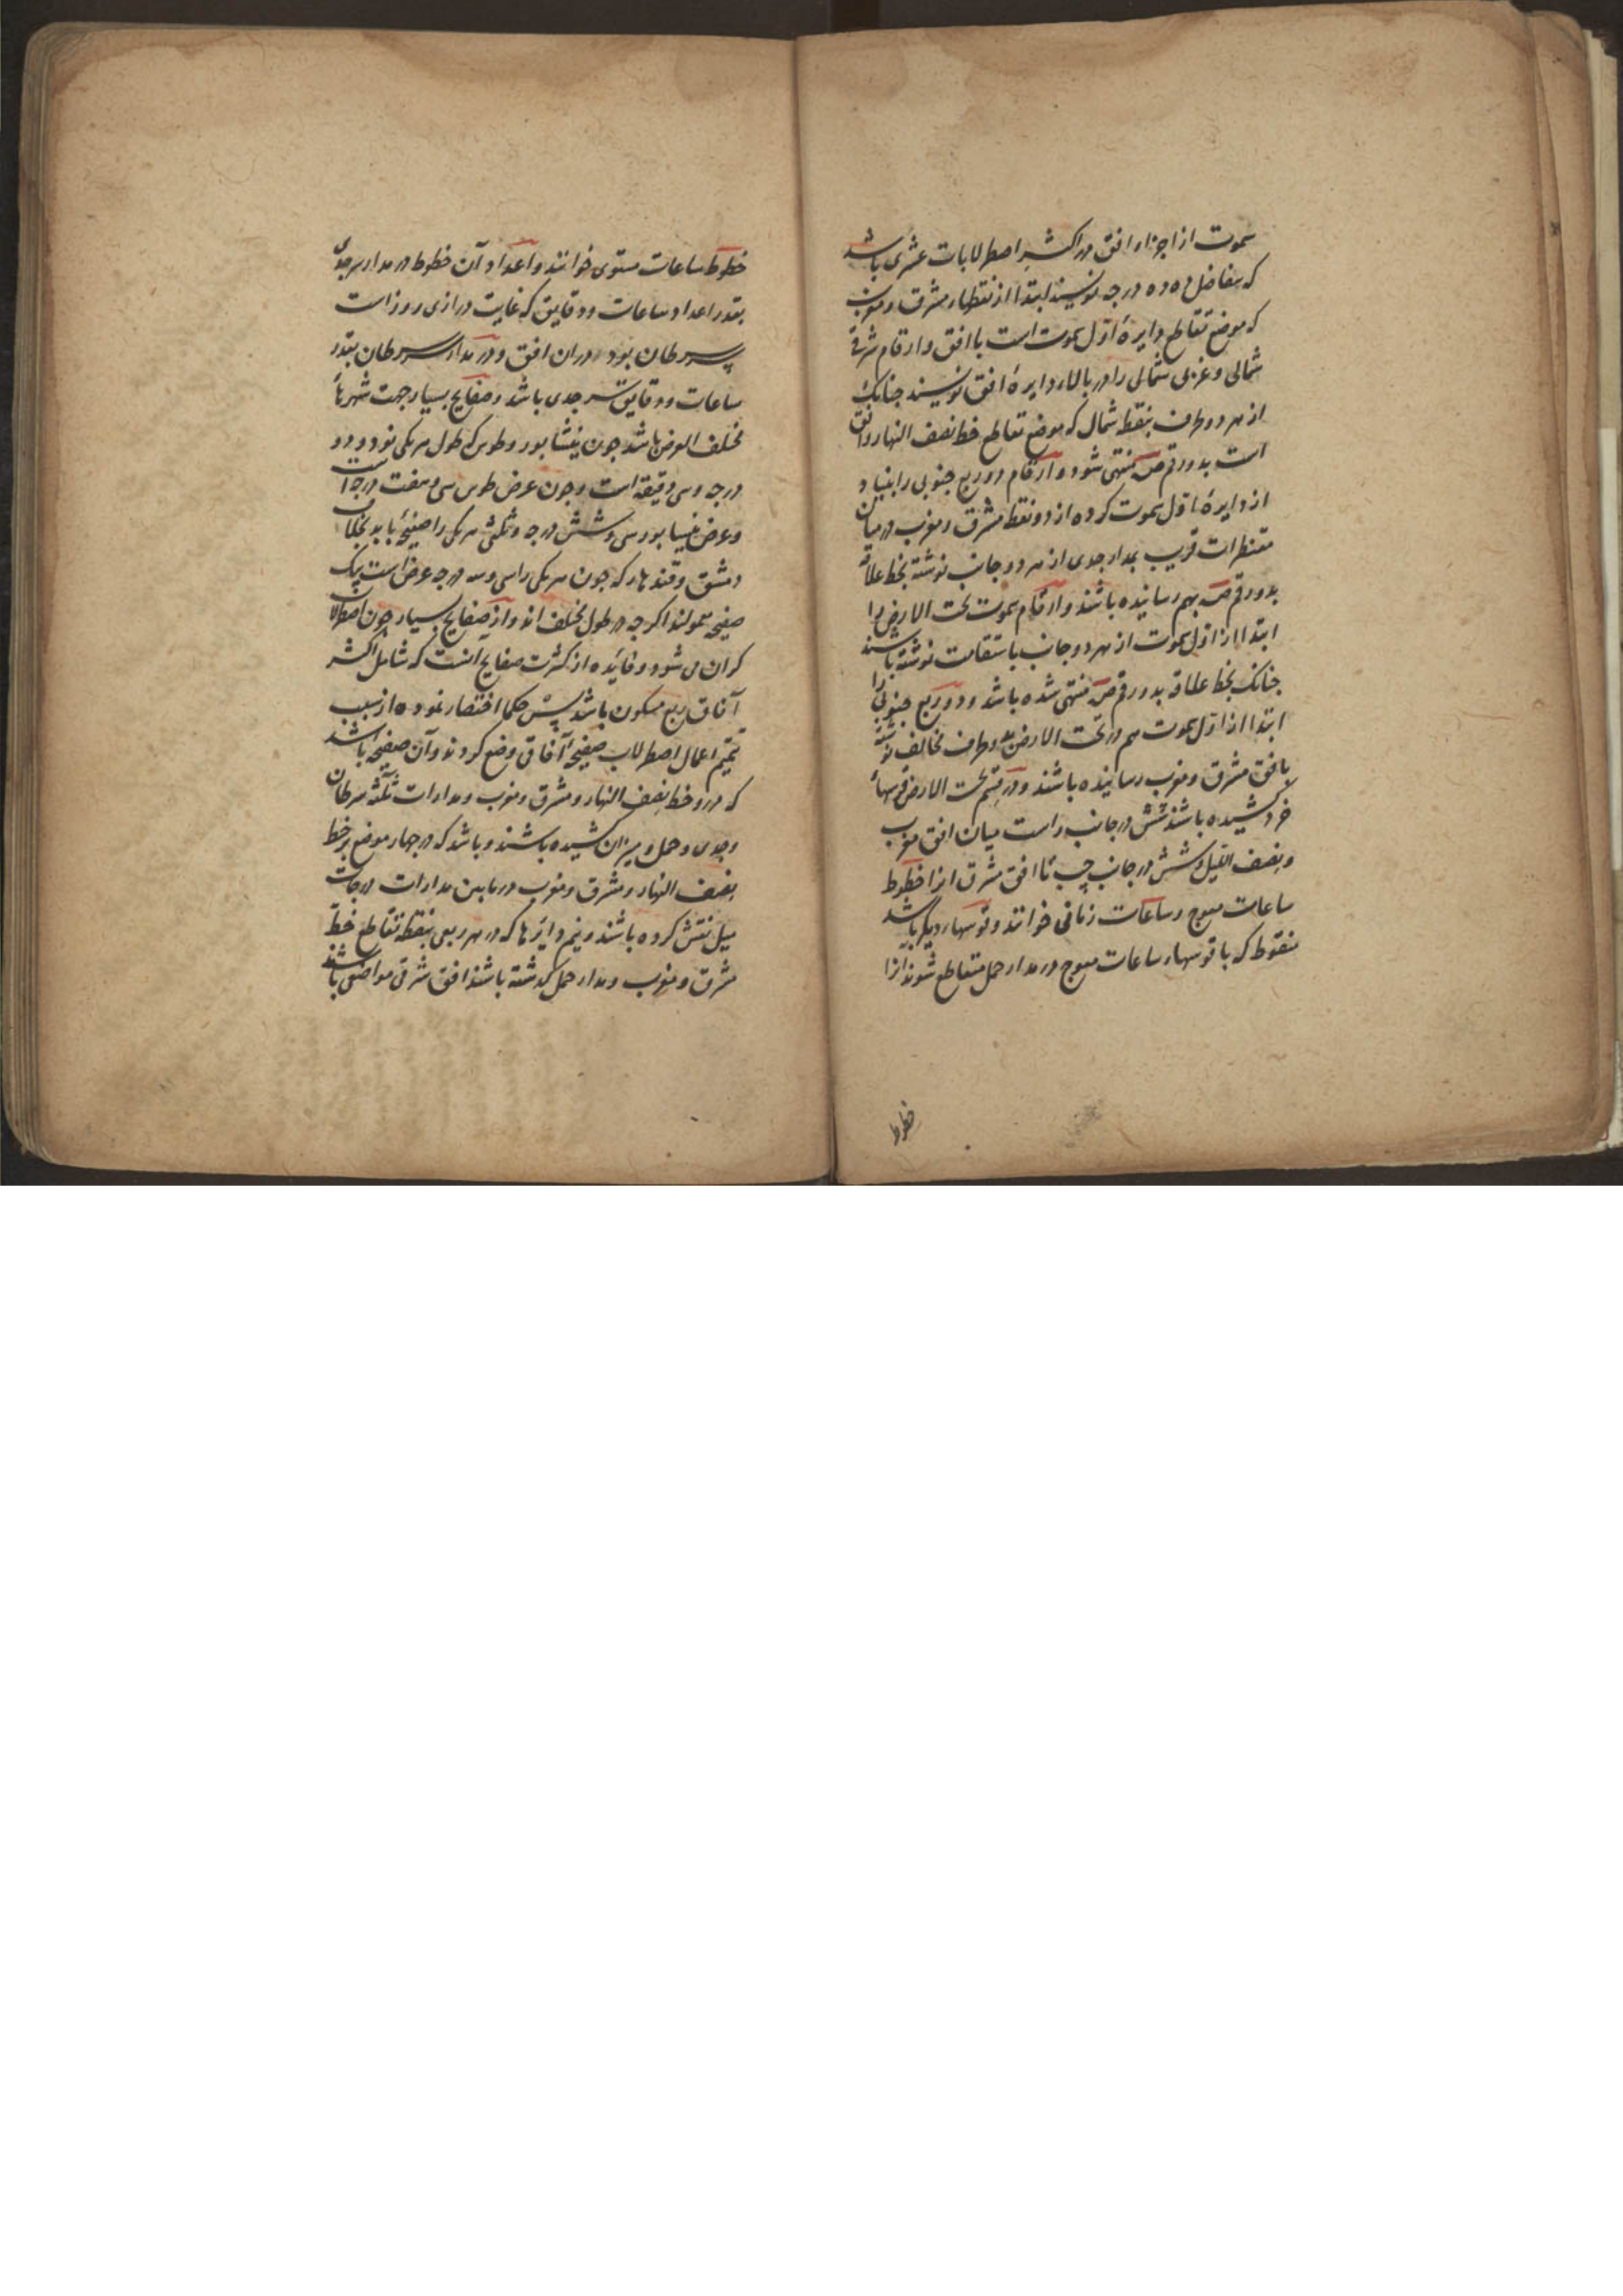 سموت از اجزاء افق در اکثر اصطرلابات عشری باشد
که بتفاضل ده ده درجه نویسند ابتدا از نقطهاء مشرق و مغرب
که موضع تقاطع دایرهٔ اوّل سموت است با افق و ارقام شرقی
شمالی و غربی شمالی را در بالاء دایرهٔ افق نویسند جنانک
از هر دو طرف بنقطهٔ شمال که موضع تقاطع خط نصف النهار و افق
است بدو رقم ص منتهی شود و ارقام دو ربع جنوبی را بنیاد
از دایرهٔ اوّل سموت کرده از دو نقطهٔ مشرق و مغرب در میان
مقنطرات قریب بمدار جدی از هر دو جانب نوشته بخط علاقه
بدو رقم ص بهم رسانیده باشند و ارقام سموت تحت الارض را
ابتدا از اوّل سموت از هر دو جانب باستقامت نوشته باشند
جنانک بخط علاقه بدو رقم ص منتهی شده باشد و دو ربع جنوبی را
ابتدا از اوّل سموت هم در تحت الارض بدو طرف مخالف نوشته
بافق مشرق و مغرب رسانیده باشند و در قسم تحت الارض قوسهاء
خرد کشیده باشند شش در جانب راست میان افق مغرب
و نصف اللیل و شش در جانب چپ تا افق مشرق انرا خطوط
ساعات معوج و ساعات زمانی خوانند و قوسهاء دیکر باشد
منقوط که با قوسهاء ساعات معوج در مدار حمل متقاطع شوند انرا
خطوط
خطوط ساعات مستوی خوانند و اعداد آن خطوط در مدار سر جدی
بقدر اعداد ساعات و دقایق که غایت درازی روز است
بسر سرطان بود در ان افق و در مدار سر سرطان بقدر
ساعات و دقایق سر جدی باشد و صفایح بسیار جهت شهرهاء
مختلف العرض باشد جون نیشابور و طوس که طول هر یکی نود و دو
درجه و سی دقیقه است و جون عرض طوس سی و هفت درجه است
و عرض نیسابور سی و شش درجه و ثلثی هر یکی را صفیحهٔ باید بخلاف
دمشق و قندهار که جون هر یکی را سی و سه درجه عرض است بیک
صفیحه معمولند اکر جه در طول مختلف اند و از صفایح بسیار چون اصطرلاب
کران می شود و فائده از کثرت صفایح انست که شامل اکثر
آفاق ربع مسکون باشد پس حکما اختصار نموده از سبب
تتمیم اعمال اصطرلاب صفیحهٔ آفاقی وضع کردند و آن صفیحه باشد
که در و خط نصف النهار و مشرق و مغرب و مدارات ثلثه سرطان
و جدی و حمل و میزان کشیده باشند و باشد که در جهار موضع بر خط
نصف النهار و مشرق و مغرب در مابین مدارات درجات
میل نقش کرده باشند و نیم دایرها که در هر ربعی بنقطهٔ تقاطع خط
مشرق و مغرب و مدار حمل کذشته باشند افق شرقی مواضعی باشد